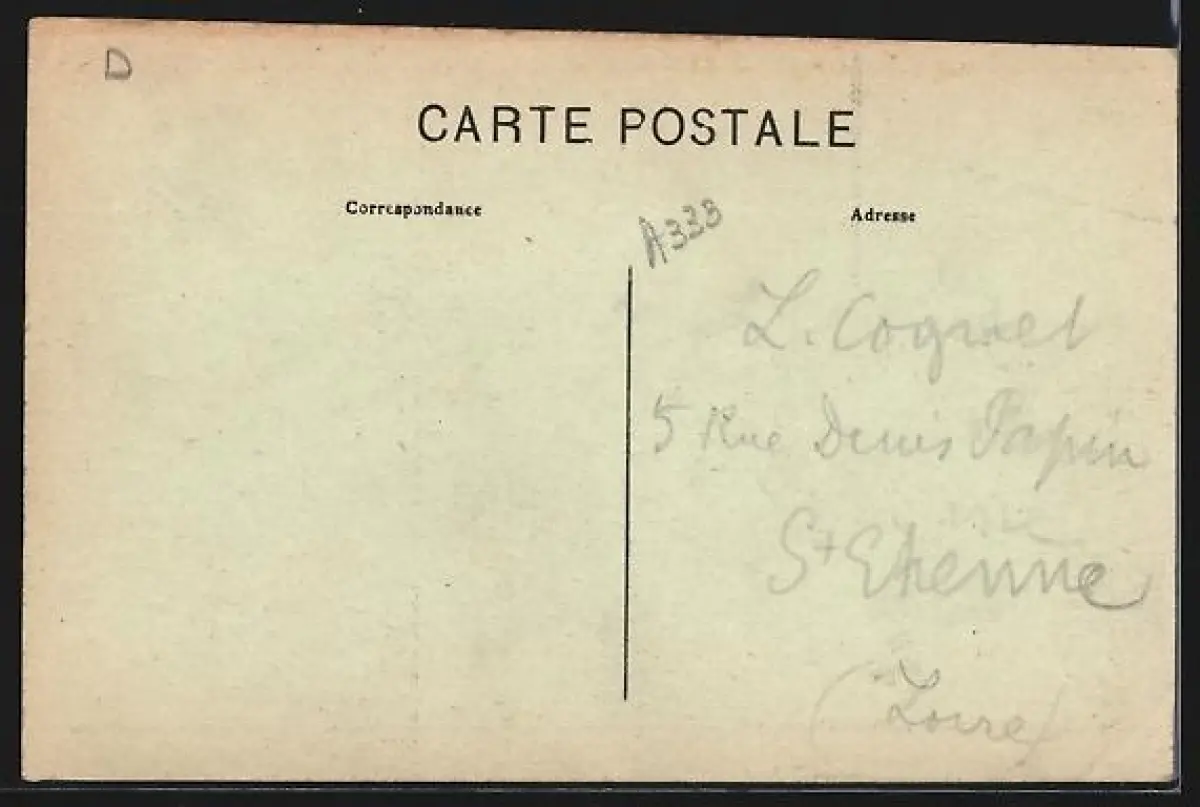 D
CARTE POSTALE
Correspondance
Adresse
A333
L. Coquet
5 Rue Denis Papin
St Etienne
(Loire)